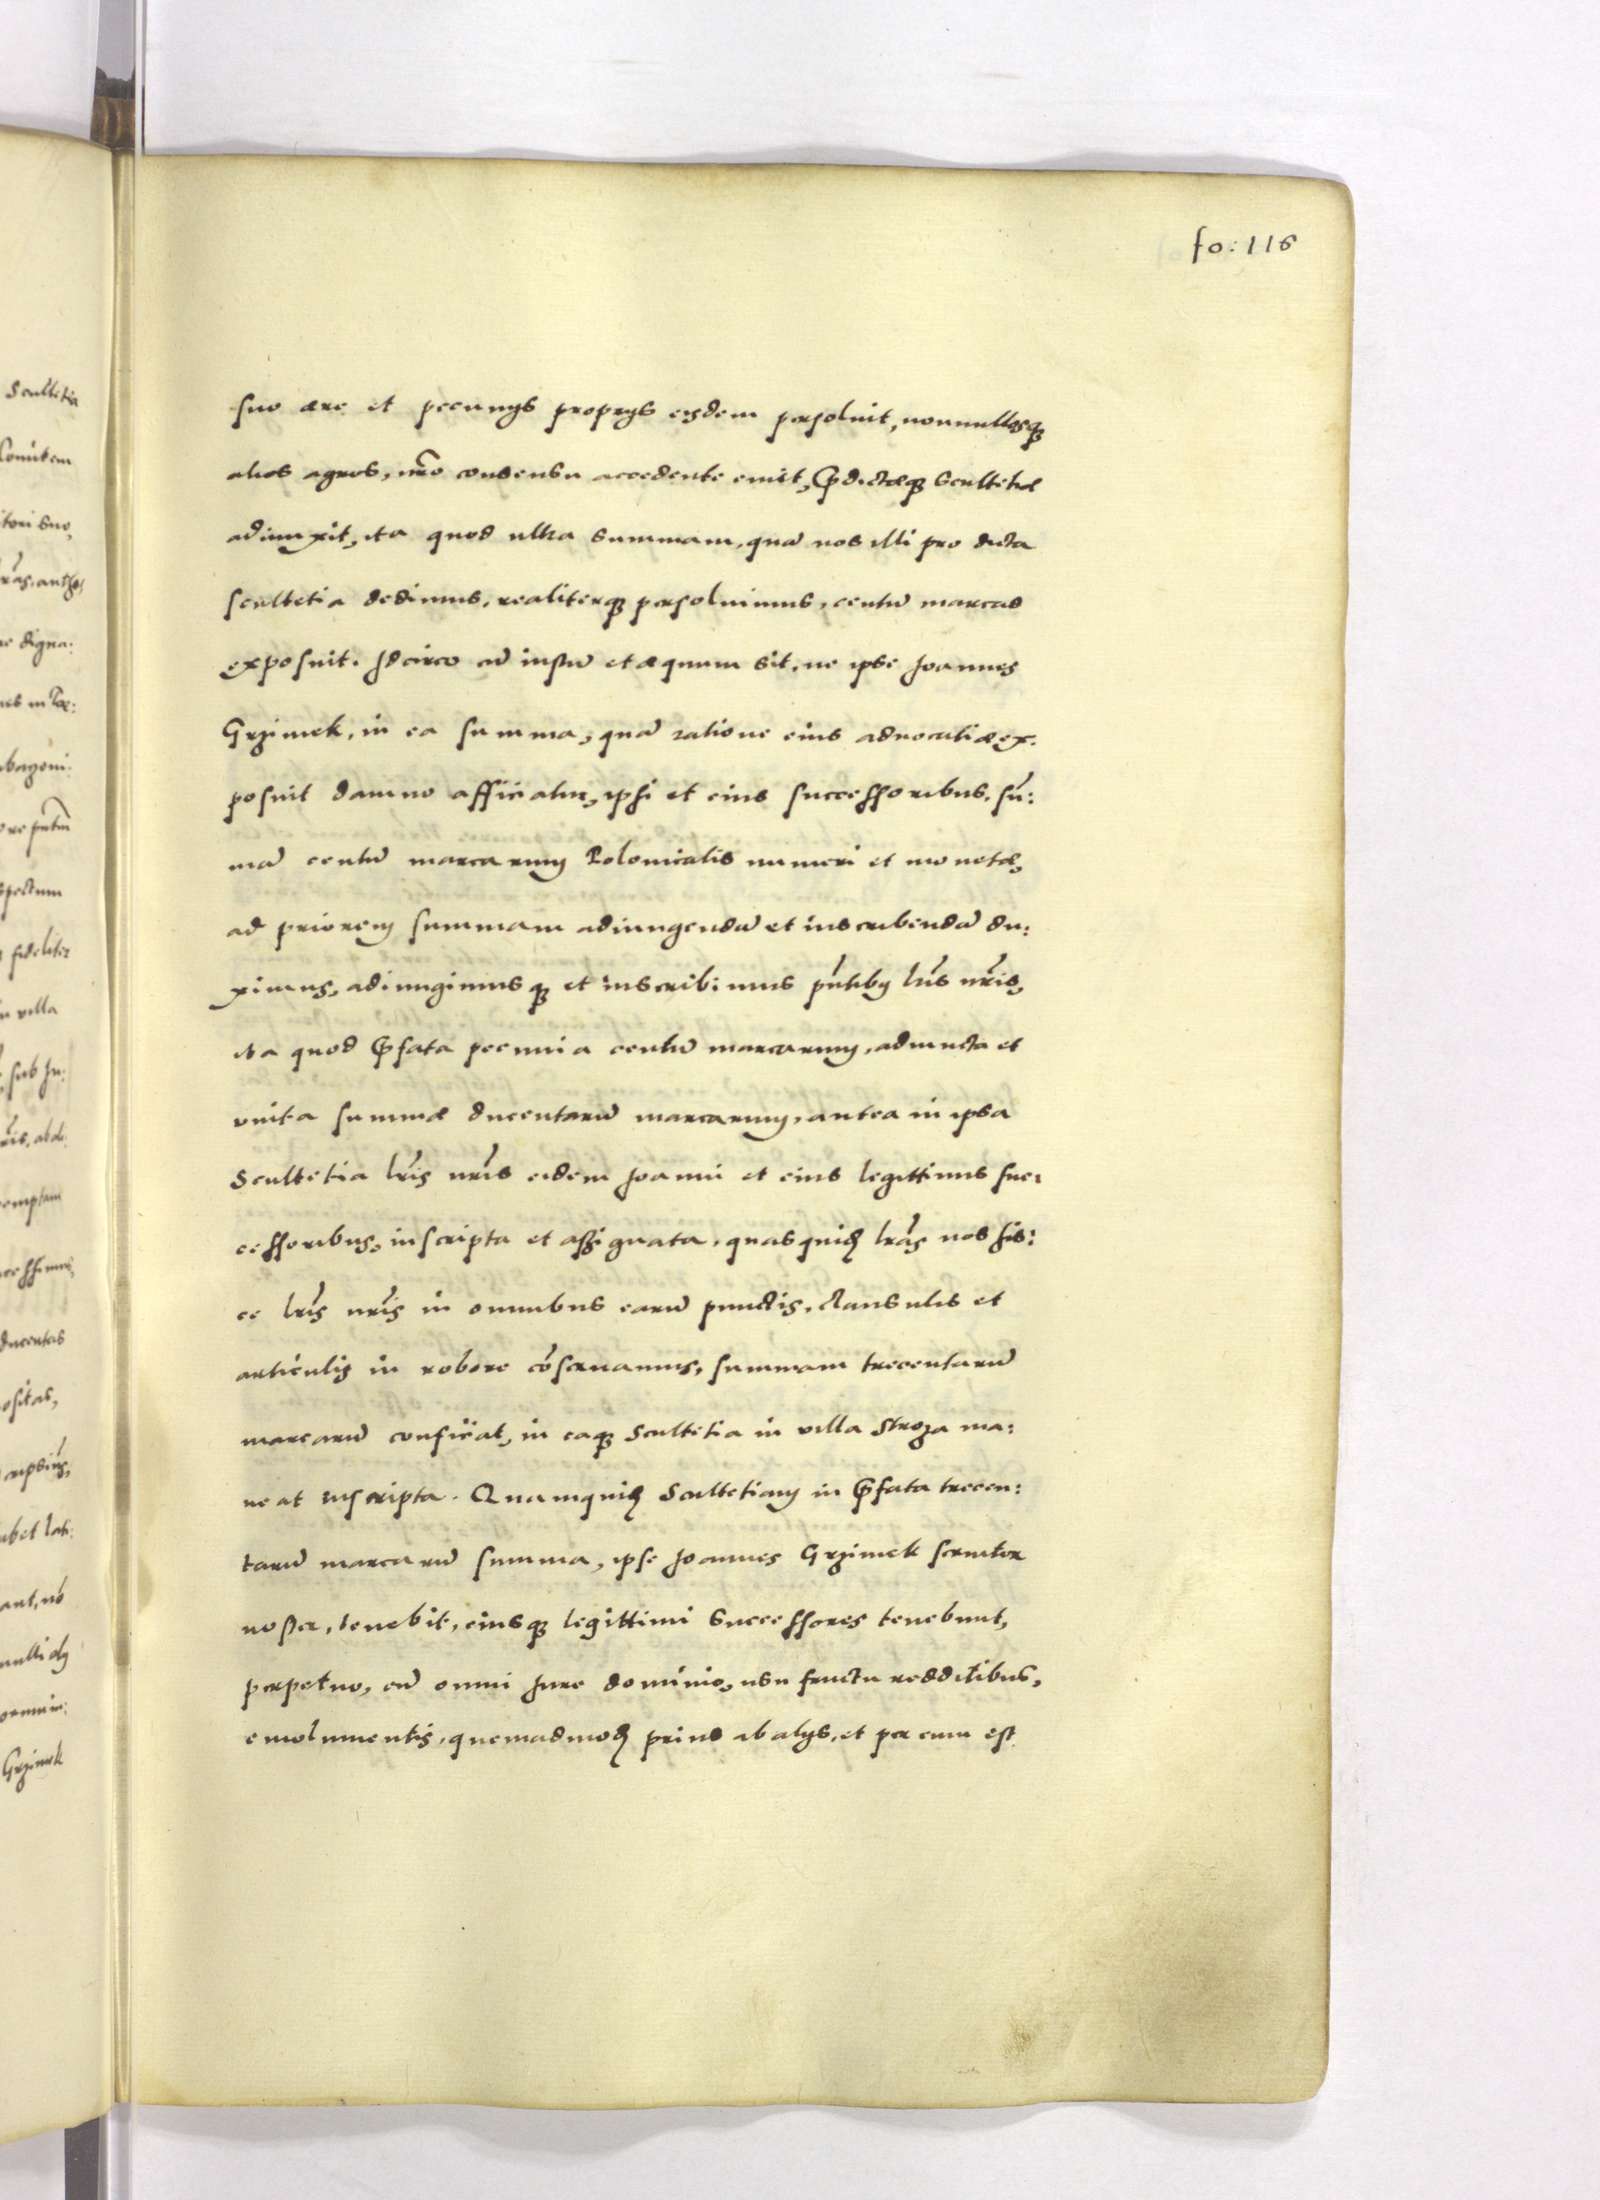 fo: 116
suo ære et pecunijs proprijs eisdem persoluit, nonnullosq3
alios agros, nr̃o consensu accedente emit, p̃dictæq3 Scultetiæ
adiunxit, ita quod ultra summam, quā nos illi pro dicta
scultetia dedimus, realiterq3 persoluimus, centū marcas
exposuit. Idcirco cū iustū et æquum sit, ne ipse Joannes
Grzimek, in ea summa, quā ratione eius aduocatiæ ex:
posuit damno afficiatur, ipsi et eius successoribus, sū:
mā centū marcarum Polonicalis numeri et monetæ,
ad priorem summam adiungendā et inscribendā du:
ximus, adiungimusq3 et inscribimus pñtibus lr̃is nr̃is,
ita quod p̃fata pecunia centū marcarum, adiuncta et
vnita summæ ducentarū marcarum, antea in ipsa
Scultetia lr̃is nr̃is eidem Joanni et eius legittimis suc:
cessoribus, inscripta et assignata, quas quid3 lr̃as nos his:
ce lr̃is nr̃is in omnibus earū punctis, clausulis et
articulis in robore cōseruamus, summam trecentarū
marcarū conficiat, in eaq3 Scultetia in villa Stroza ma:
neat inscripta. Quamquid3 Scultetiam in p̃fata trecen:
tarū marcarū summa, ipse Joannes Grzimek seruitor
noster, tenebit, eiusq3 legittimi Successores tenebunt,
perpetuo, cū omni Jure dominio, usu fructu redditibus,
emolumentis, quemadmod3 prius ab alijs, et per eum est